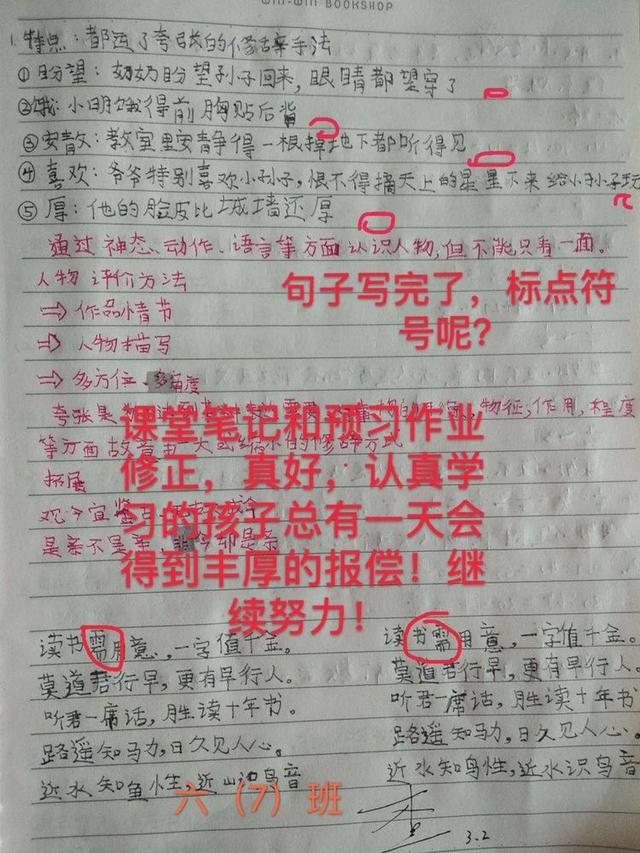 WIN-WIN BOOKSHOP
1.特点：都运了夸张的修辞手法
①盼望：奶奶盼望孙子回来，眼睛都望穿了
②饿：小明饿得前胸贴后背
③安散：教室里安静得一根掉地下都听得见
④喜欢：爷爷特别喜欢小孙子，恨不得摘天上的星星下来给小孙子玩
⑤厚：他的脸皮比城墙还厚
通过神态、动作、语言等方面认识人物，但不能只看一面。
人物评价方法
句子写完了，标点符
号呢？
⇒作品情节
⇒人物描写
⇒多方位、多角度
夸张是 物征，作用，程度
课堂笔记和预习作业
等方面故意 大或缩小的修辞方式
修正，真好，认真学
拓展
习的孩子总有一天会
观今宜鉴古
是亲不是亲，非 却是亲
得到丰厚的报偿！继
续努力！
读书需用意，一字值千金。
莫道君行早，更有早行人。
听君一席话，胜读十年书。
路遥知马力，日久见人心。
近水知鱼性，近山识鸟音
读书需用意，一字值千金。
莫道君行早，更有早行人。
听君一席话，胜读十年书
路遥知马力，日久见人心。
近水知鸟性，近水识鸟音
六（7）班
3.2